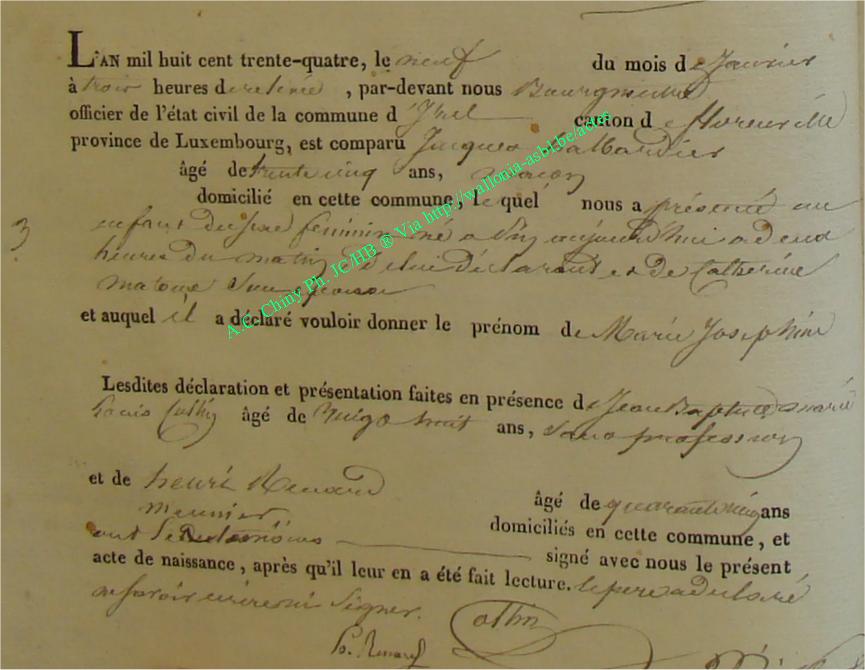 L'AN mil huit cent trente-quatre, le neuf du mois de Janvier
à trois heures de relevée, par-devant nous Bourgmestre
officier de l'état civil de la commune d'Izel canton de florenville
province de Luxembourg, est comparu Jacques
âgé de trente cinq ans, maçon
domicilié en cette commune, lequel nous a présenté un
3
enfant du sexe feminin né aujourd'hui a deux
heures du matin de lui déclarant et de Catherine
son epouse
et auquel il a déclaré vouloir donner le prénom de Marie Josephine
Lesdites déclaration et présentation faites en présence de Jean Baptiste marie
Louis Collin âgé de vingt huit ans, sans profession
et de henri Renard âgé de quarante cinq ans
meunier domiciliés en cette commune, et
ont les temoins signé avec nous le présent
acte de naissance, après qu'il leur en a été fait lecture. le pere a declaré
ne savoir ecrire ni signer.
Collin
h. Renard
A.C. Chiny Ph. JC/HB ® Via http://wallonia-asbl.be/actes